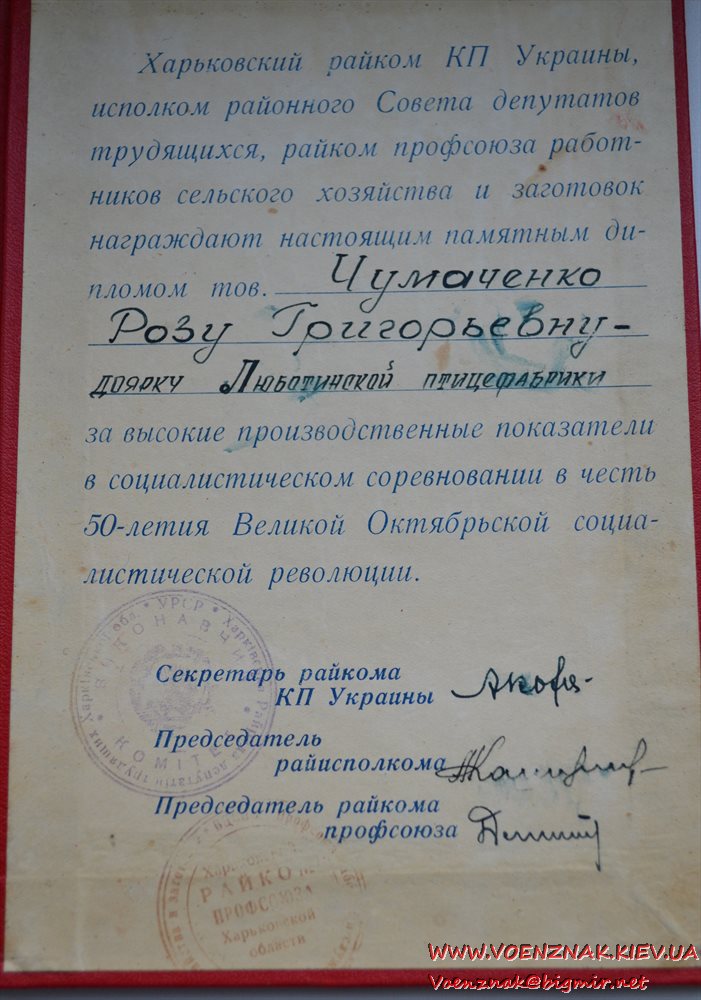 Харьковский райком КП Украины,
исполком районного Совета депутатов
трудящихся, райком профсоюза работ-
ников сельского хозяйства и заготовок
награждают настоящим памятным ди-
пломом тов. Чумаченко
Розу Григорьевну-
доярку Люботинской птицефабрики
за высокие производственные показатели
в социалистическом соревновании в честь
50-летия Великой Октябрьской социа-
листической революции.
Секретарь райкома
КП Украины
Председатель
райисполкома
Председатель райкома
профсоюза
УРСР • Харківська Районна
депутатів трудящих Харківської обл.
ВИКОНАВЧИЙ
КОМІТЕТ
РАЙКОМ
ПРОФСОЮЗА
Харьковской
области
www.voenznak.kiev.ua
Voenznak@bigmir.net